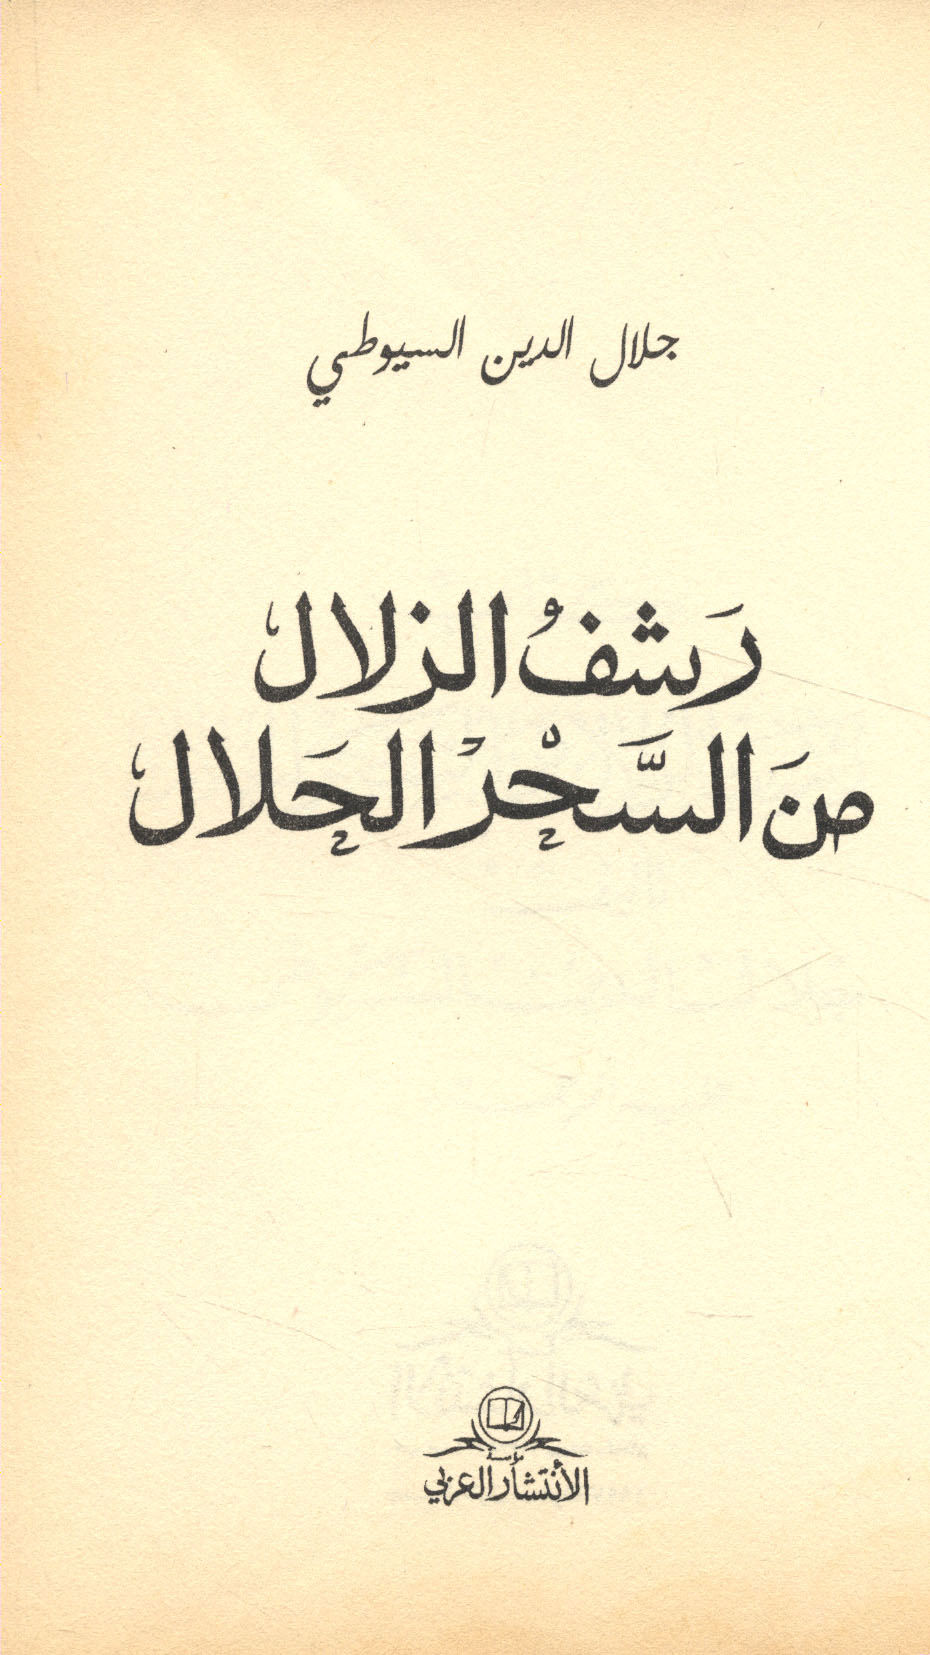 جلال الدين السيوطي
رَشفُ الزلال
مَنَ السَّحْرْ الحَلال
مؤسسة
الأنتشار العربي